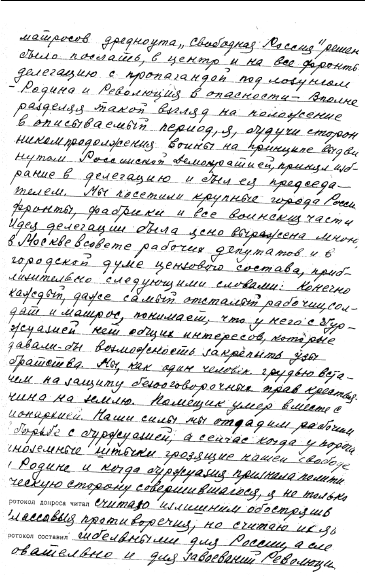 матросов дредноута „Свободная Россия" решен
было послать, в центр и на все фронты
делегацию с пропагандой под лозунгом
- Родина и Революция в опасности - Вполне
разделяя такой взгляд на положение
в описываемый период, я, будучи сторон
ником продолжения войны на принципе выдви
нутом Российской демократией, принял изб-
рание в делегацию и был ея председа-
телем. Мы посетили крупные города России
фронты, фабрики и все воинские части
Идея делегации была ясно выражена мною,
в Москве в совете рабочих депутатов и в
городской думе цензового состава, приб-
лизительно следующими словами: Конечно
каждый, даже самый отсталый рабочий, сол-
дат и матрос, понимает, что у него с бур-
жуазией нет общих интересов, которые
давали-бы возможность закрепить узы
братства. Мы, как один человек грудью вста-
нем на защиту безоговорочных прав крестья-
нина на землю. Помещик умер вместе с
монархией. Наши силы мы отдадим рабочим
в борьбе с буржуазией, а сейчас когда у порога
иноземные штыки грозящие нашей свободе
и Родине и когда буржуазия признала полити
ческую сторону совершившегося, я не только
ротокол допроса читал считаю излишним обострять
классовыя противоречия, но считаю их
ротокол составил гибельными для России, а сле
овательно и для завоеваний Революци